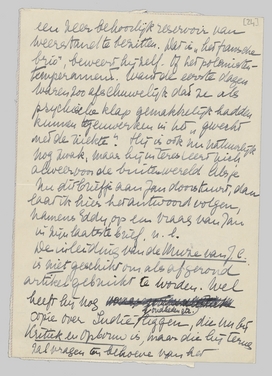 een zeer behoorlijk reservoir van
weerstand te bezitten. Dat is "het fransche
brio", beweert hij zelf. Of het polemisten-
temperament. Want de eerste dagen
waren zoo afschuwelijk dat ze als
psychische klap gemakkelijk hadden
kunnen tegenwerken in het "gevecht
met de ziekte". Hij is ook nu natuurlijk
nog zwak, maar hij interesseert zich
alweer voor de buitenwereld
Nu dit Griffis aan Jan doorstuurt, dan
laat ik hier het antwoord volgen,
namens Eddy, op een vraag van Jan
in zijn laatste brief, n.l.
De inleiding van de Muze van J.C.
is niet geschikt om als afgerond
artikel gebruikt te worden. Wel
heeft hij nog
copie over Indië liggen, die nu bij
Kritiek en Opbouw is, maar die hij terug
zal vragen ten behoeve van het